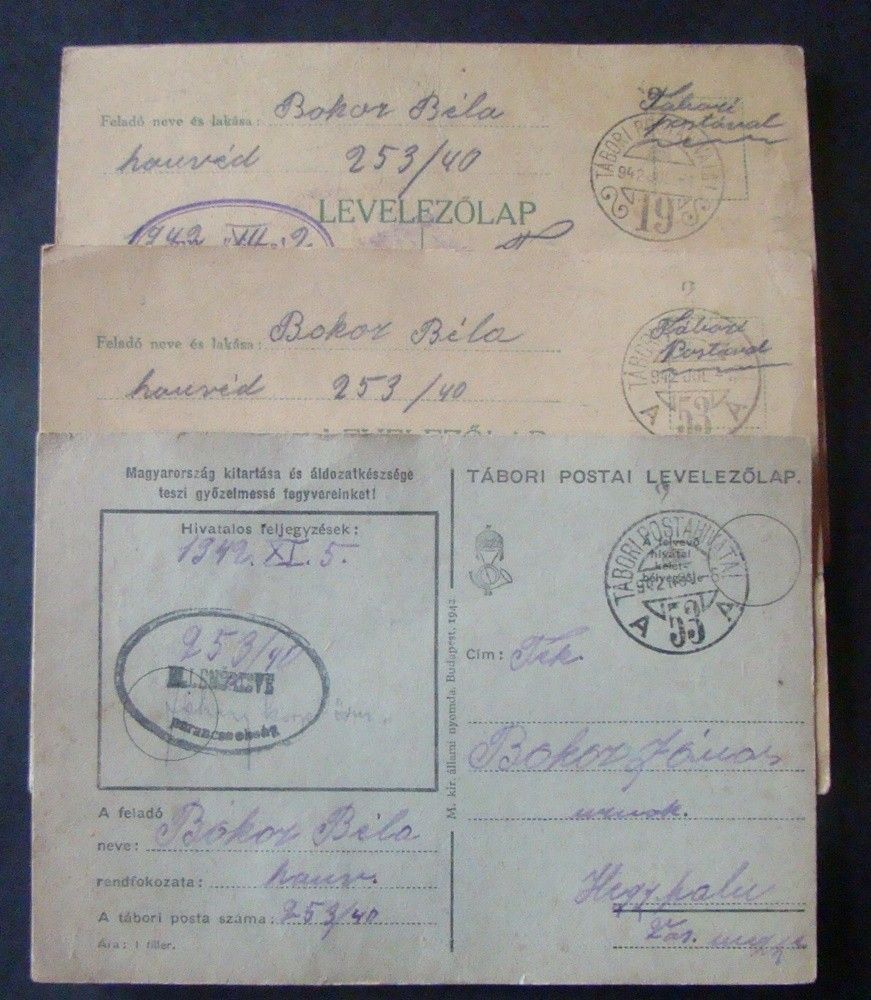 Feladó neve és lakása: Bokor Béla
Tábori
postával
honvéd 253/40
TÁBORI POSTAHIVATAL
942
19
LEVELEZŐLAP
1942 XII. 2
Feladó neve és lakása: Bokor Béla
Tábori
Postával
honvéd 253/40
942 JUL
A 53 A
LEVELEZŐLAP
Magyarország kitartása és áldozatkészsége
teszi győzelmessé fegyvereinket!
Hivatalos feljegyzések:
1942. XI. 5.
253/40
ELLENŐRIZVE
parancsnokság
A feladó
neve: Bokor Béla
rendfokozata: honv.
A tábori posta száma: 253/40
Ára: 1 fillér.
M. kir. állami nyomda, Budapest, 1942
TÁBORI POSTAI LEVELEZŐLAP.
TÁBORI POSTAHIVATAL
A felvevő
hivatal
kelet-
bélyegzője
942
A 53 A
Cím: Tek.
Bokor János
urnak.
Hegyfalu
Vas megye